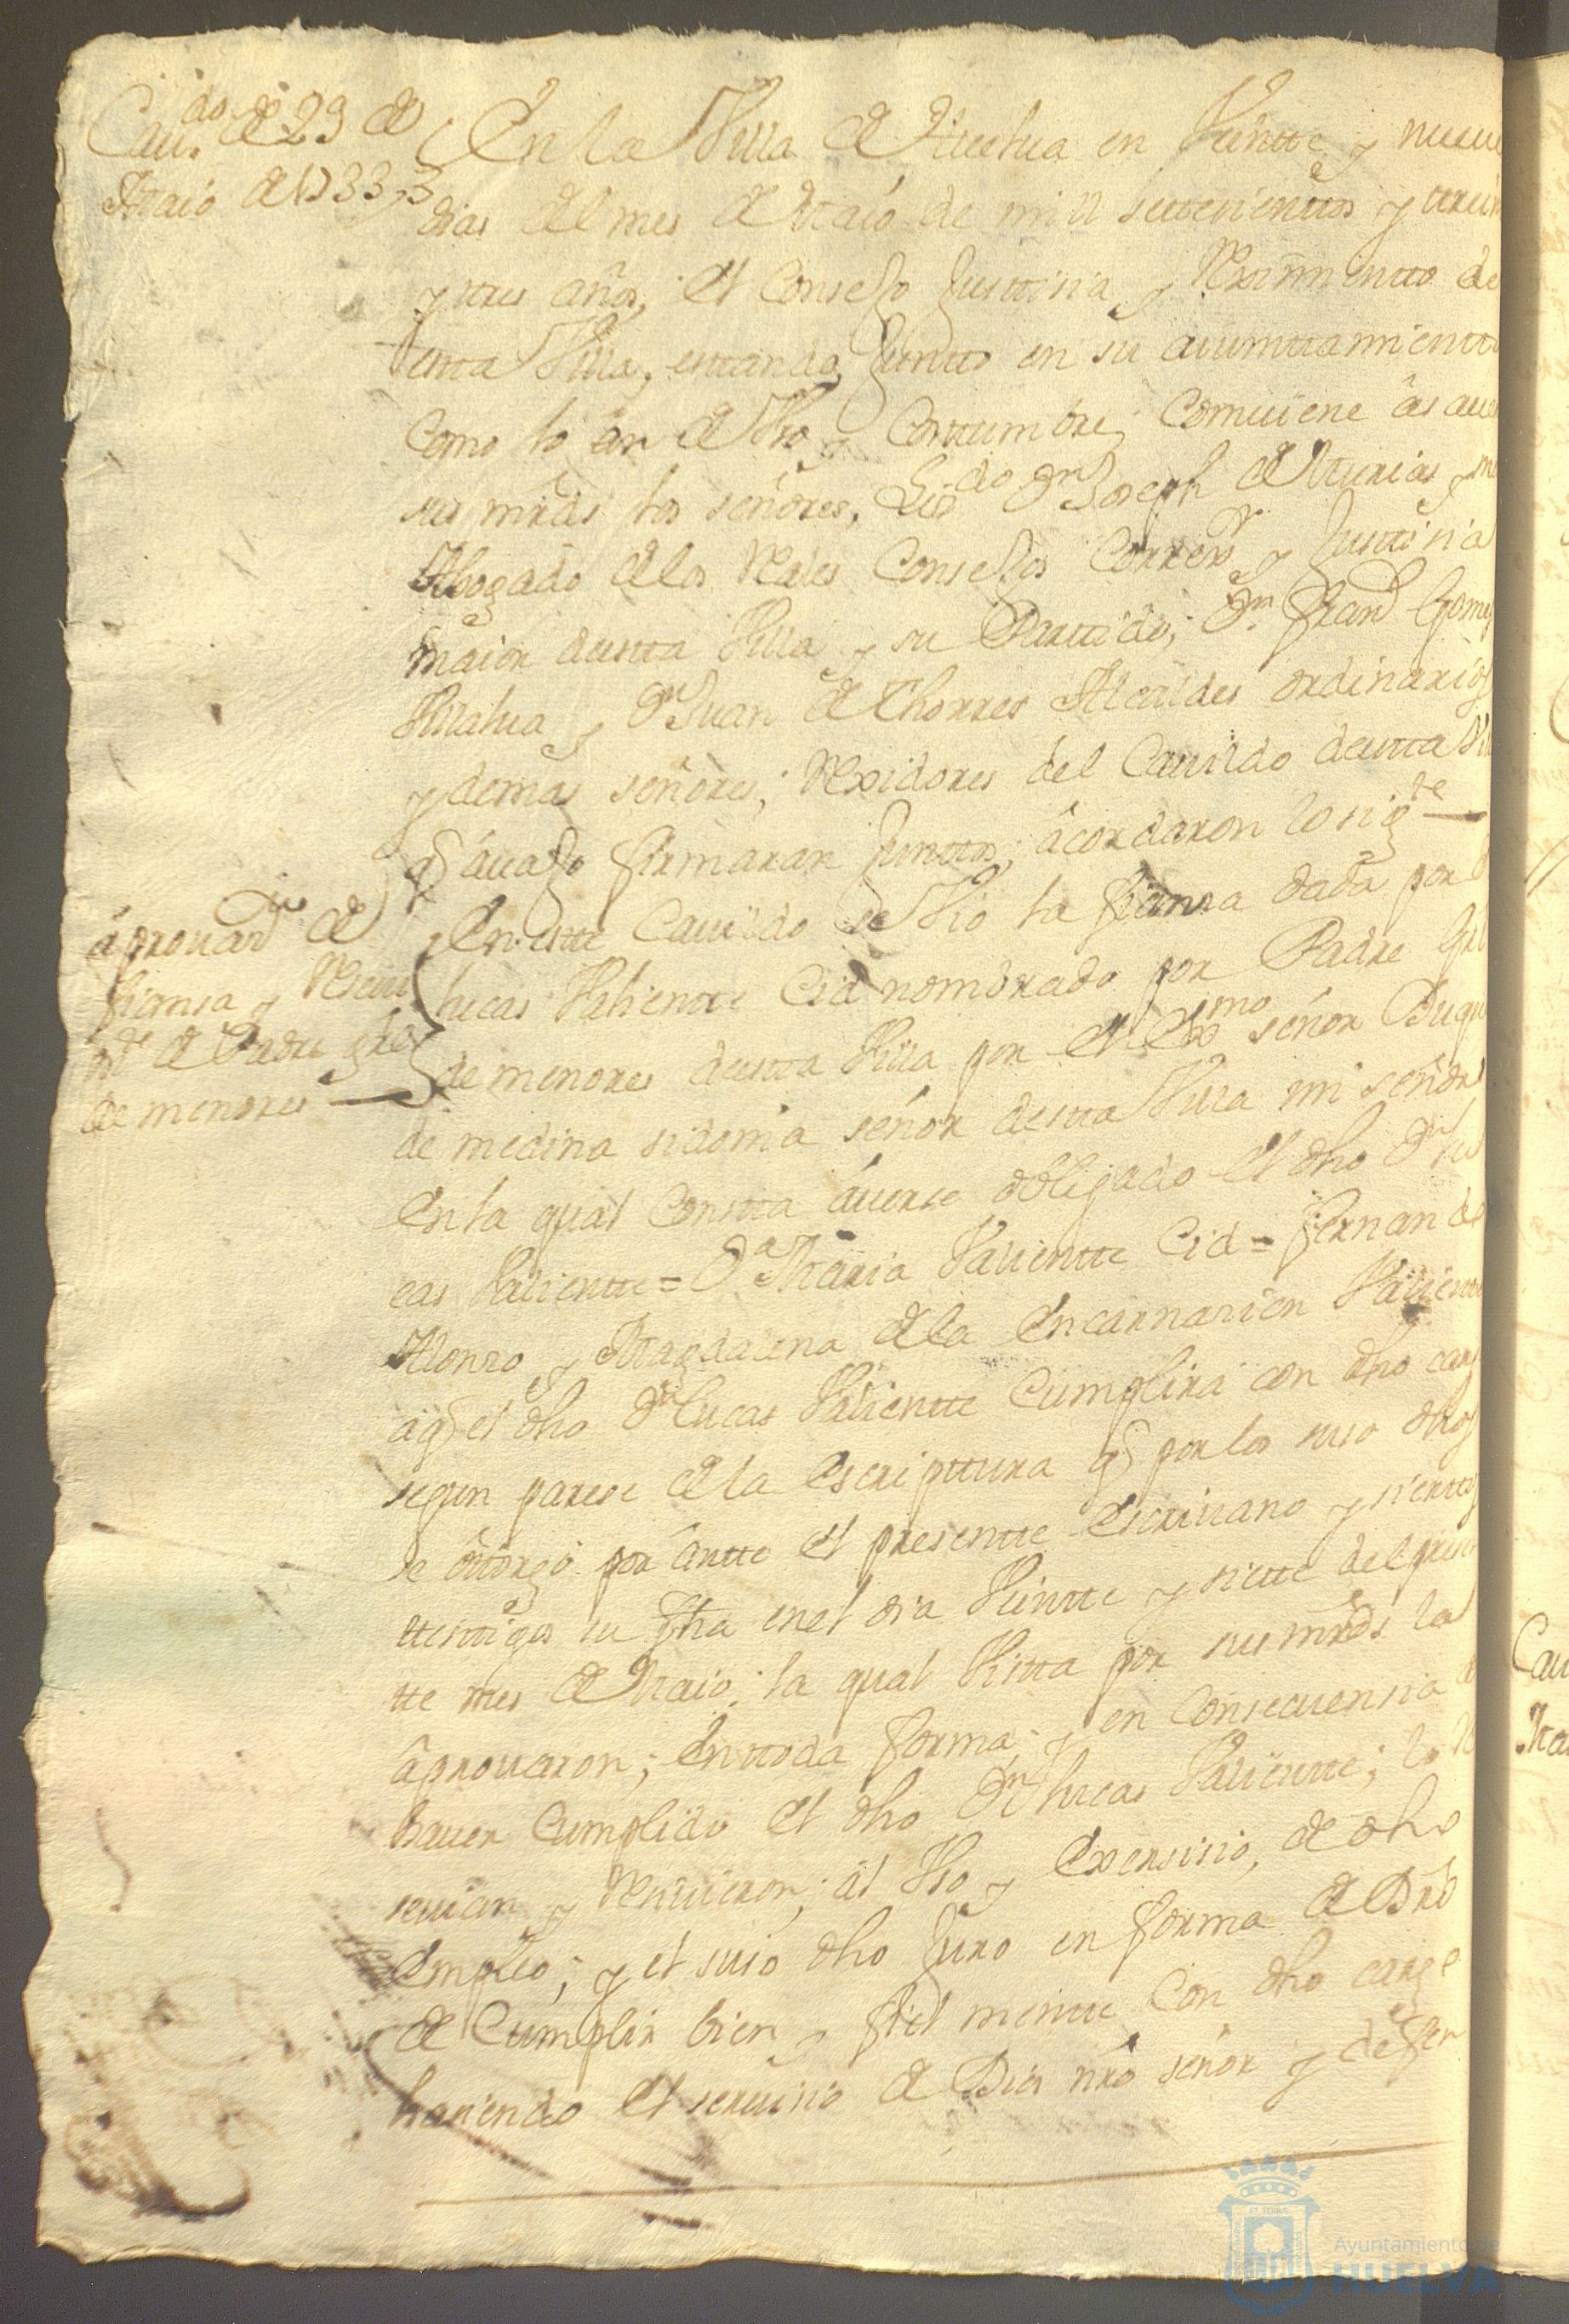 Cau.do de 29 de
Maio de 1733
En la Villa de Huelua en Veintte y nueue
dias del mes de Maio de mill settesienttos y trein
y ttres años, el Consejo Justtisia y Reximientto de
estta Villa, estando Juntto en su aiunttamientto
Como lo an de Vso y Costtumbre, Comuiene â sauer
sus mrds los señores, Lisdo Dn Joseph de Murias
Abogado de los Rs Consejos Correxor y Justtisia
maior de estta Villa y su Parttido; Dn Franco Gomez
Villalua y Dn Juan de Thorres Alcaldes ordinarios
y demas señores, Rexidores del Cauildo de estta Vi
q áuajo firmaran Junttos; âcordaron lo sigte
áprouazn de
fiansa y Resiui
mto de Padre gral
de menores
En estte Cauildo se Vio la fiansa dada por D
Lucas Valientte Cid nombrado por Padre Grl
de menores de estta Villa por el Exmo señor Duque
de medina sidonia señor de estta Villa mi señor
En la qual Constta áuerse obligado el dho Dn Lu
cas Valientte = Da Maria Valientte Cid = fernando
Alonso y Magdalena de la Encarnasion Valientte
a q el dho Dn Lucas Valientte Cumplirá con dho cargo
segun parese de la escripttura q por los suso dhos
se ôttorgó por ântte el presentte escriuano y sierttos
ttesttigos su fha en el dia Veintte y siette del presen
tte mes de Maio; la qual Vistta por sus mrds la
âprouaron; En ttoda forma; y en Consecuensia de
hauer Cumplido el dho Dn Lucas Valientte; lo Re
seuian y Resiuieron; al Vso y Exersisio, de dho
Empleo; y el suso dho Juro en forma de Dro
de Cumplir bien y fiel mentte Con dho cargo
hasiendo el seruisio de Dios nro señor y defen
Cau
Ma
Ayuntamiento de
HUELVA